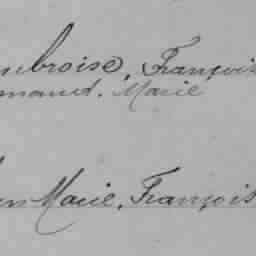 mbroise, François
rmand. Marie
en Marie, François